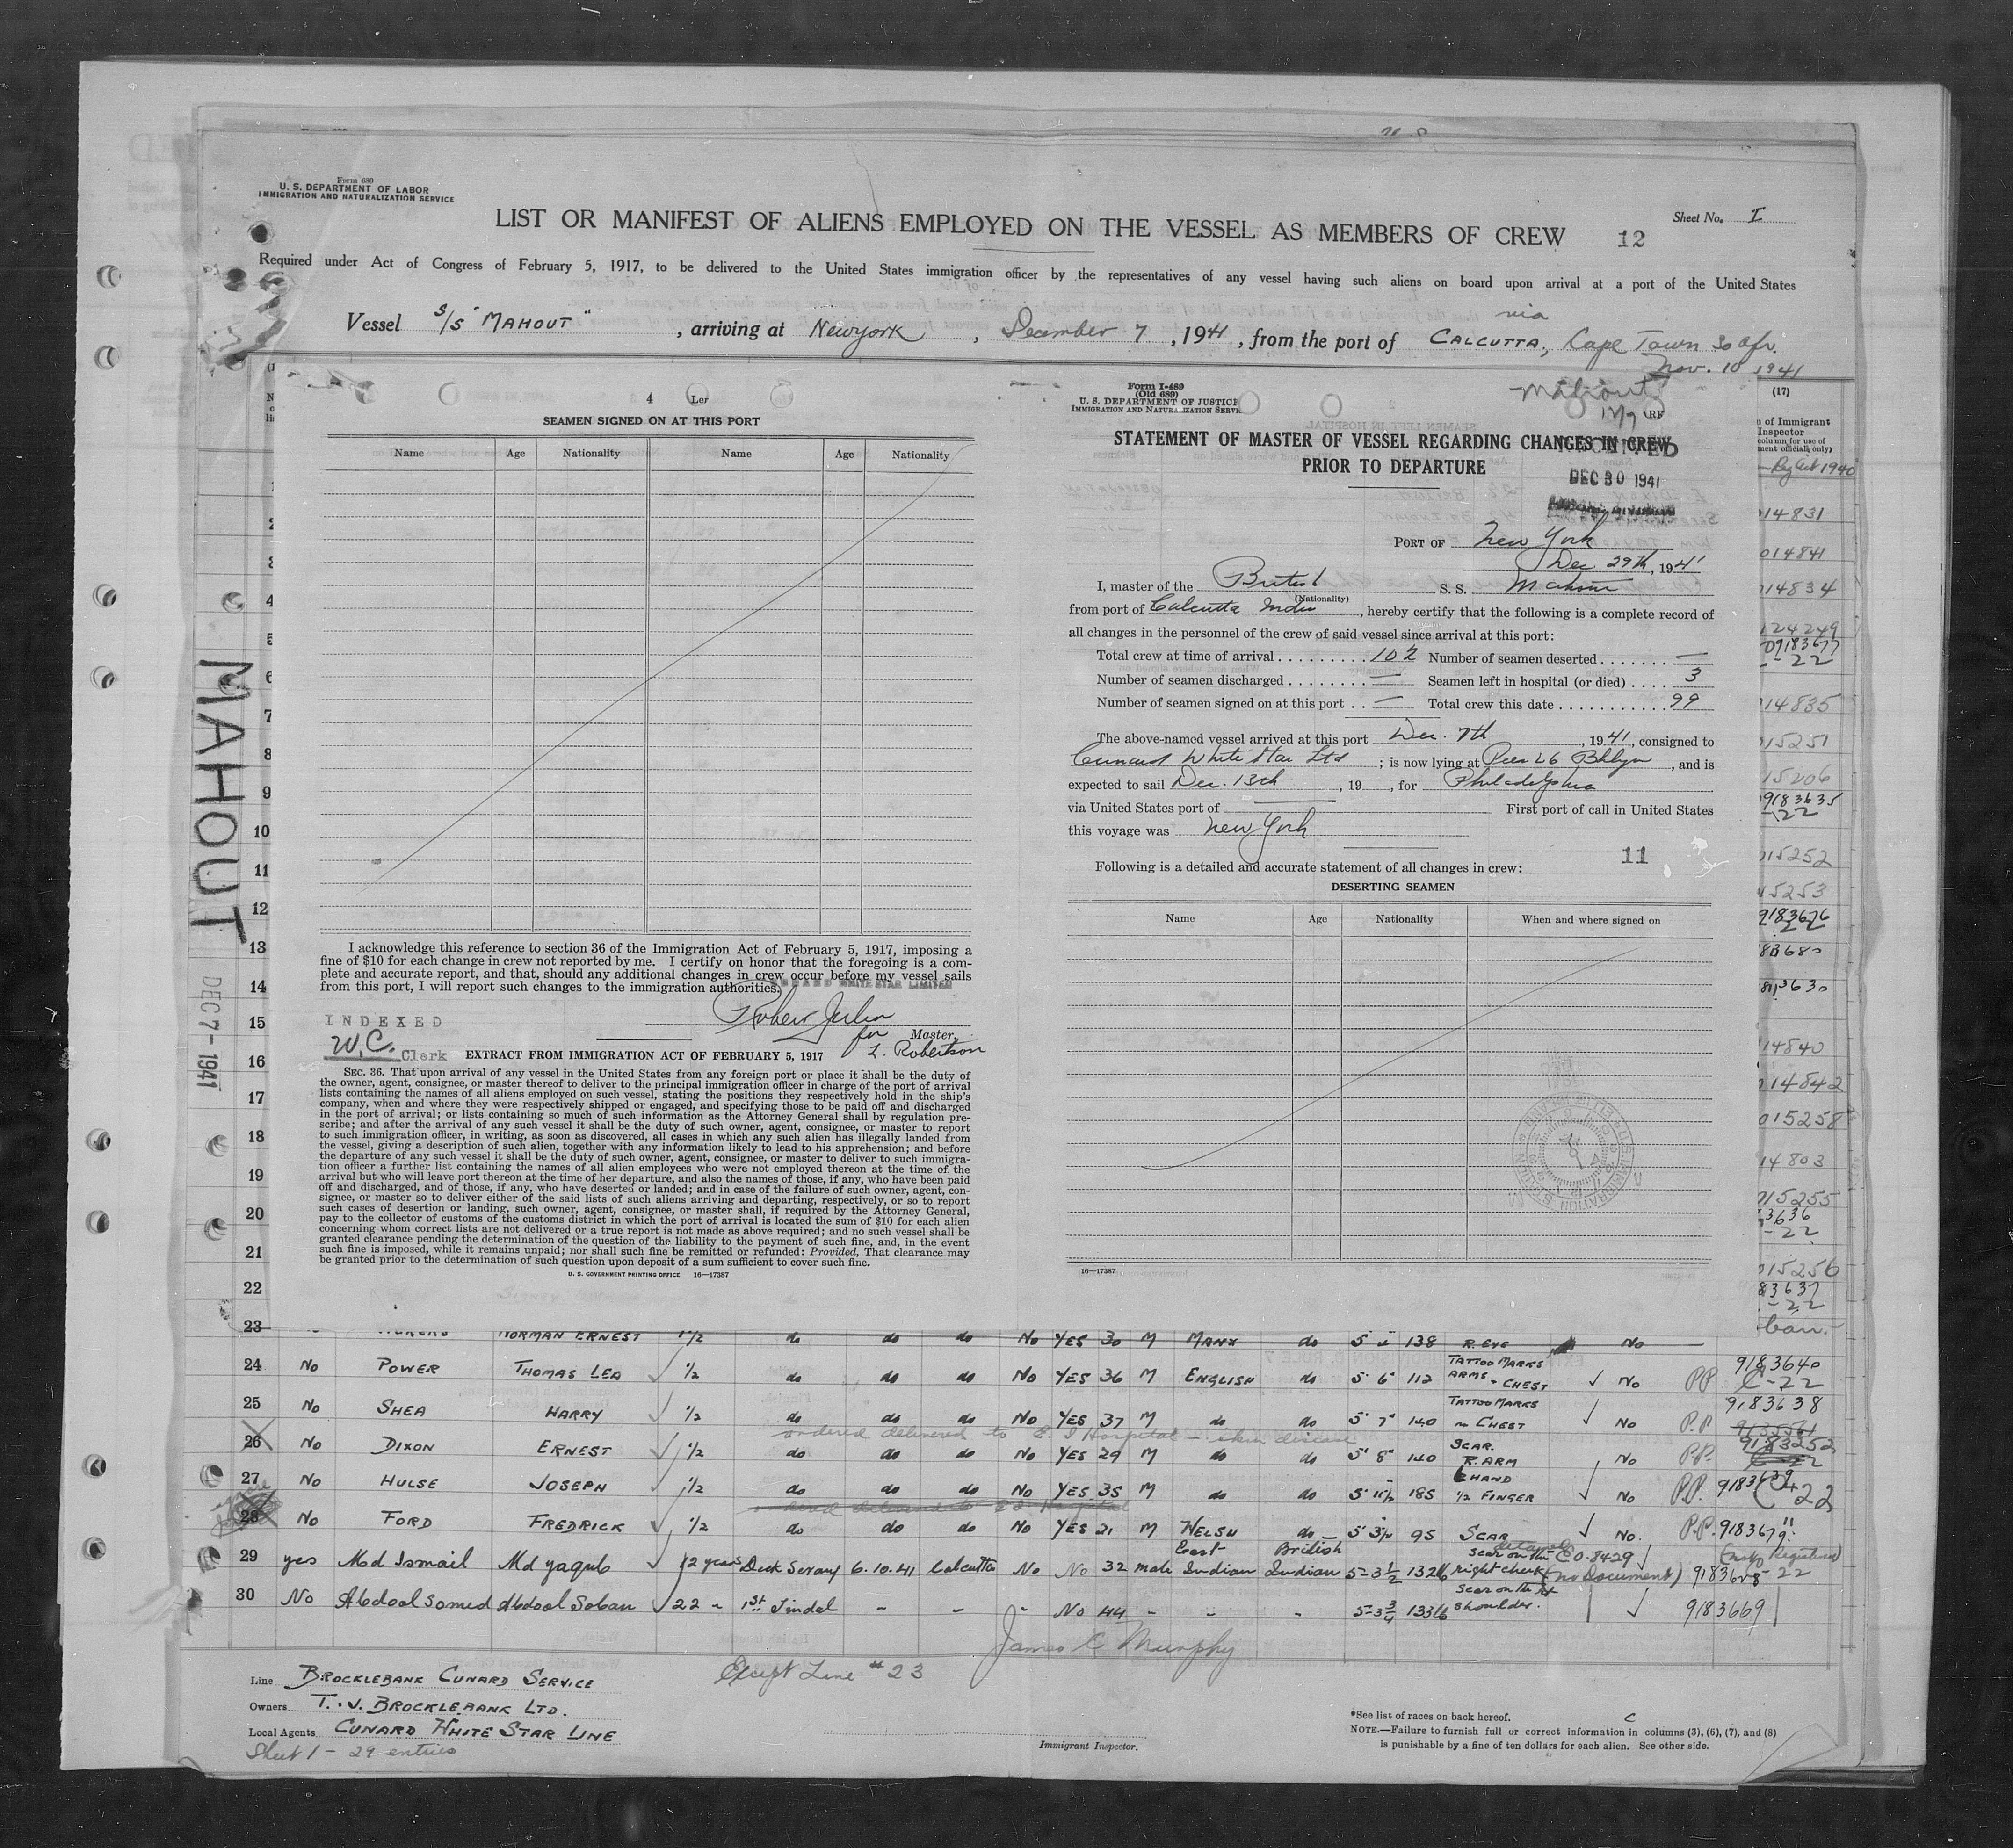 Form 680
U. S. DEPARTMENT OF LABOR
IMMIGRATION AND NATURALIZATION SERVICE
Sheet No. I
LIST OR MANIFEST OF ALIENS EMPLOYED ON THE VESSEL AS MEMBERS OF CREW 12
Required under Act of Congress of February 5, 1917, to be delivered to the United States immigration officer by the representatives of any vessel having such aliens on board upon arrival at a port of the United States
via
Vessel S/S "MAHOUT", arriving at Newyork, December 7, 1941, from the port of CALCUTTA, Cape Town So Afr.
Nov. 10 1941
4 Ler
SEAMEN SIGNED ON AT THIS PORT
Name Age Nationality Name Age Nationality
I acknowledge this reference to section 36 of the Immigration Act of February 5, 1917, imposing a
fine of $10 for each change in crew not reported by me. I certify on honor that the foregoing is a com-
plete and accurate report, and that, should any additional changes in crew occur before my vessel sails
from this port, I will report such changes to the immigration authorities.
WHITE STAR LIMITED
INDEXED
for Master,
W.C. Clerk
L. Robertson
EXTRACT FROM IMMIGRATION ACT OF FEBRUARY 5, 1917
SEC. 36. That upon arrival of any vessel in the United States from any foreign port or place it shall be the duty of
the owner, agent, consignee, or master thereof to deliver to the principal immigration officer in charge of the port of arrival
lists containing the names of all aliens employed on such vessel, stating the positions they respectively hold in the ship's
company, when and where they were respectively shipped or engaged, and specifying those to be paid off and discharged
in the port of arrival; or lists containing so much of such information as the Attorney General shall by regulation pre-
scribe; and after the arrival of any such vessel it shall be the duty of such owner, agent, consignee, or master to report
to such immigration officer, in writing, as soon as discovered, all cases in which any such alien has illegally landed from
the vessel, giving a description of such alien, together with any information likely to lead to his apprehension; and before
the departure of any such vessel it shall be the duty of such owner, agent, consignee, or master to deliver to such immigra-
tion officer a further list containing the names of all alien employees who were not employed thereon at the time of the
arrival but who will leave port thereon at the time of her departure, and also the names of those, if any, who have been paid
off and discharged, and of those, if any, who have deserted or landed; and in case of the failure of such owner, agent, con-
signee, or master so to deliver either of the said lists of such aliens arriving and departing, respectively, or so to report
such cases of desertion or landing, such owner, agent, consignee, or master shall, if required by the Attorney General,
pay to the collector of customs of the customs district in which the port of arrival is located the sum of $10 for each alien
concerning whom correct lists are not delivered or a true report is not made as above required; and no such vessel shall be
granted clearance pending the determination of the question of the liability to the payment of such fine, and, in the event
such fine is imposed, while it remains unpaid; nor shall such fine be remitted or refunded: Provided, That clearance may
be granted prior to the determination of such question upon deposit of a sum sufficient to cover such fine.
U. S. GOVERNMENT PRINTING OFFICE 16—17387
Form I-489
(Old 689)
U. S. DEPARTMENT OF JUSTICE
IMMIGRATION AND NATURALIZATION SERVICE
Mahout
12/7 RF
STATEMENT OF MASTER OF VESSEL REGARDING CHANGES IN CREW
PRIOR TO DEPARTURE
DEC 30 1941
PORT OF New York
Dec 29th, 1941
I, master of the British S. S. Mahout
(Nationality)
from port of Calcutta India, hereby certify that the following is a complete record of
all changes in the personnel of the crew of said vessel since arrival at this port:
Total crew at time of arrival 102 Number of seamen deserted —
Number of seamen discharged — Seamen left in hospital (or died) 3
Number of seamen signed on at this port — Total crew this date 99
The above-named vessel arrived at this port Dec. 7th, 1941, consigned to
Cunard White Star Ltd; is now lying at Pier 26 Bklyn, and is
expected to sail Dec. 13th, 19, for Philadelphia
via United States port of — First port of call in United States
this voyage was New York
11
Following is a detailed and accurate statement of all changes in crew:
DESERTING SEAMEN
Name Age Nationality When and where signed on
16—17387
(17)
of Immigrant
Inspector
column for use of
ment officials only)
Reg Act 1940
14831
014841
14834
124249
09183677
-22
14835
15251
15206
9183635
-22
015252
15253
9183676
22
83680
813630
14840
14842
015258
14803
015255
3636
-22
015256
83637
-22
MAHOUT
DEC 7-1941
2
3
4
5
6
7
8
9
10
11
12
13
14
15
16
17
18
19
20
21
22
23 NORMAN ERNEST 1/2 do do do No YES 30 M MANX do 138 R. EYE No
24 No POWER THOMAS LEA 1/2 do do do No YES 36 M ENGLISH do 5' 6" 112 TATTOO MARKS ARMS + CHEST No P.P. 9183640 C-22
25 No SHEA HARRY 1/2 do do do No YES 37 M do do 5' 7" 140 TATTOO MARKS on CHEST No P.P. 9183638
ordered delivered to E I Hospital - skin disease
26 No DIXON ERNEST 1/2 do do do No YES 29 M do do 5' 8" 140 SCAR. R. ARM No P.P. 9183252
27 No HULSE JOSEPH 1/2 do do do No YES 35 M do do 5' 11½ 185 L HAND ½ FINGER No P.P. 9183639 C-22
28 No FORD FREDRICK 1/2 do do do No YES 21 M WELSH do 5' 3½ 95 SCAR No. P.P. 9183679
29 yes Md Ismail Md yaqub 12 years Deck Serang 6.10.41 Calcutta No No 32 male East Indian British Indian 5-3½ 132 lb scar on the right cheek CO.8429 (no Document) 22
30 No Abdool Somed Abdool Soban 22 " 1st Tindal - - " No 44 - " - 5-3¾ 133 lb scar on the rt shoulder. 9183669
James C Murphy
Line BROCKLEBANK CUNARD SERVICE
Except Line #23
Owners T. & J. BROCKLEBANK LTD.
Local Agents CUNARD WHITE STAR LINE
Sheet 1 - 29 entries
Immigrant Inspector.
*See list of races on back hereof. C
NOTE.—Failure to furnish full or correct information in columns (3), (6), (7), and (8)
is punishable by a fine of ten dollars for each alien. See other side.